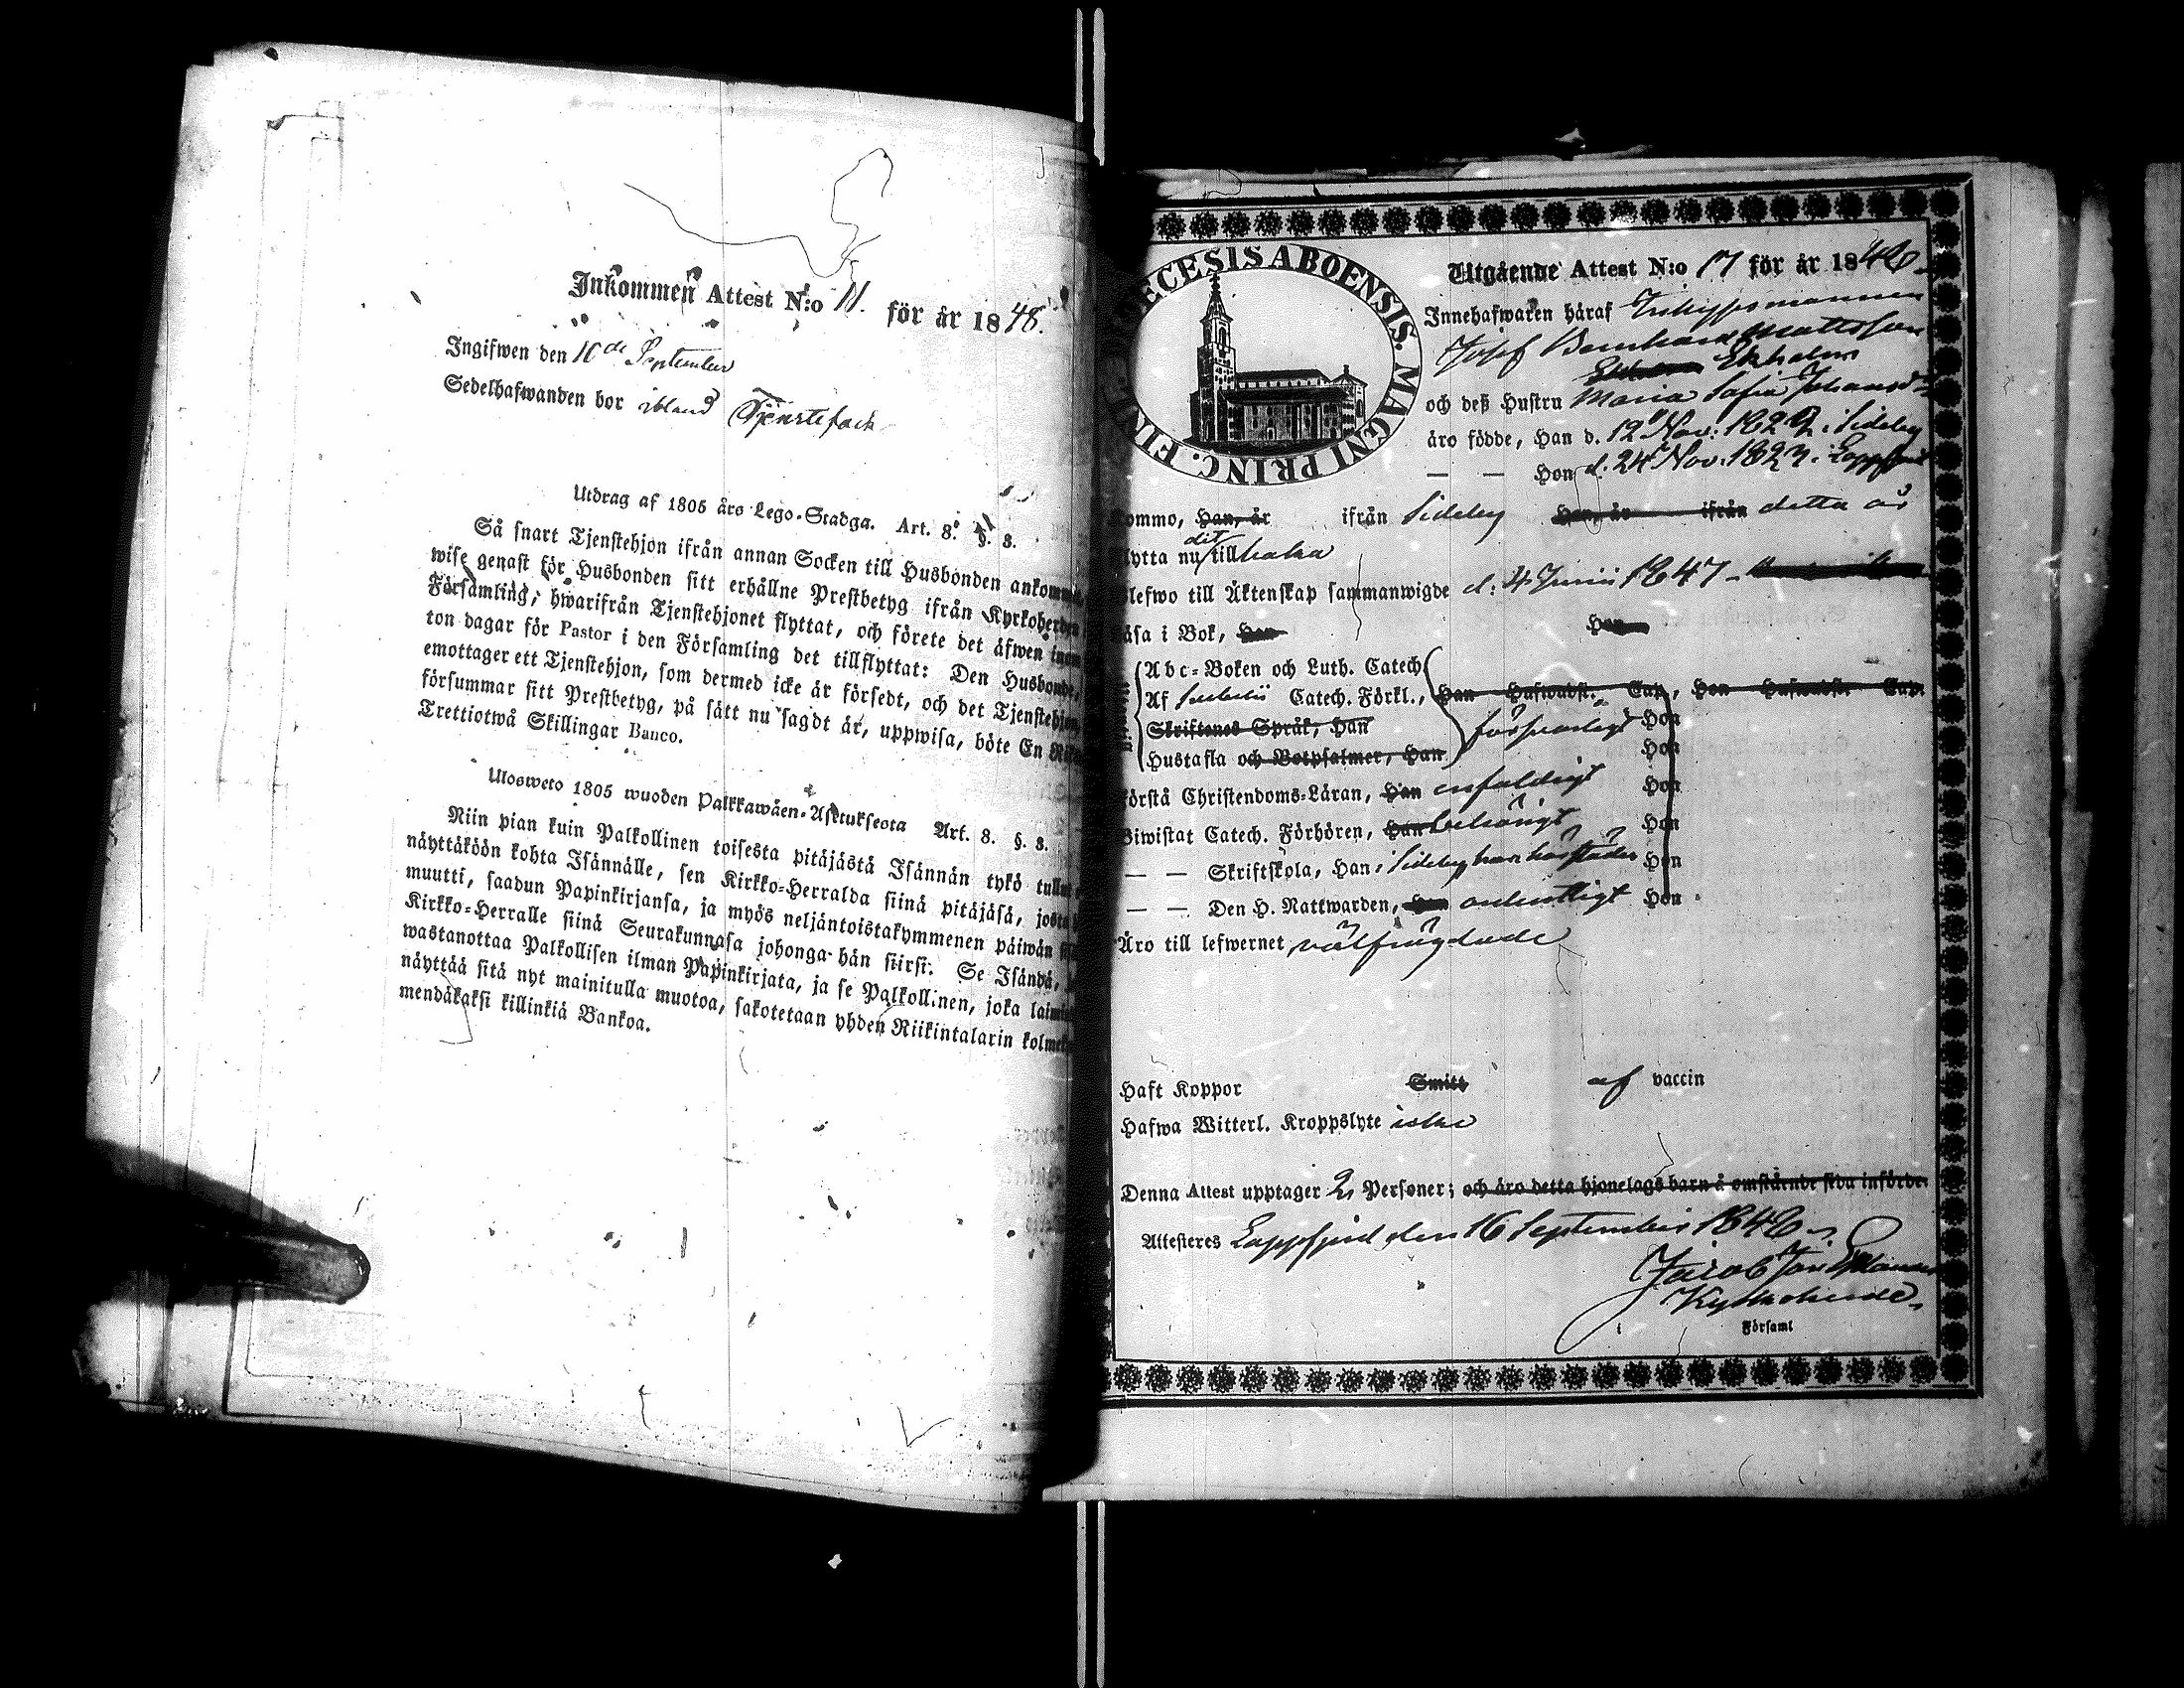 Inkommen Attest N:o 11. för år 1848.
Ingifwen den 16de September
Sedelhafwanden bor ibland Tjenstefolk
Utdrag af 1805 års Lego-Stadga. Art. 8. §. 3.
Så snart Tjenstehjon ifrån annan Socken till Husbonden ankommit,
wise genast för Husbonden sitt erhållne Prestbetyg ifrån Kyrkoherden
Församling, hwarifrån Tjenstehjonet flyttat, och förete det äfwen inom
ton dagar för Pastor i den Församling det tillflyttat: Den Husbonde,
emottager ett Tjenstehjon, som dermed icke är försedt, och det Tjenstehjon,
försummar sitt Prestbetyg, på sätt nu sagdt är, uppwisa, böte En
Trettiotwå Skillingar Banco.
Ulosweto 1805 wuoden Palkkawäen-Asetuksesta Art. 8. §. 3.
Niin pian kuin Palkollinen toisesta pitäjästä Isännän tykö tullut
näyttäköön kohta Isännälle, sen Kirkko-Herralda siinä pitäjäsä, josta
muutti, saadun Papinkirjansa, ja myös neljäntoistakymmenen päiwän
Kirkko-Herralle siinä Seurakunnasa johonga hän siirsi: Se Isändä,
wastanottaa Palkollisen ilman Papinkirjata, ja se Palkollinen, joka
näyttää sitä nyt mainitulla muotoa, sakotetaan yhden Riikintalarin
mendäkaksi killinkiä Bankoa.
DIOECESIS ABOENSIS. MAGNI PRINC. FIN
Utgående Attest N:o 17 för år 1848
Innehafwaren häraf Inhysesmannen
Josef Bernhard Mattsson
Ekholm
och deß Hustru Maria Sofia Johansd:r
äro födde, Han d. 12 Nov: 1822 i Sideby
— — Hon d. 24 Nov. 1827 i Lappfjerd
Kommo, Han, år ifrån Sideby Hon, år ifrån detta år
Flytta nu dit till baka
Blefwo till Äktenskap sammanwigde d: 4 Junii 1847
Läsa i Bok, Han Hon
Abc-Boken och Luth. Catech
Af Svebelii Catech. Förkl., Han Hufwudst. Cap, Hon Hufwudst. Cap.
Skriftenes Språk, Han försvarligt Hon
Hustafla och Botpsalmer, Han Hon
Förstå Christendoms-Läran, Han enfaldigt Hon
Biwistat Catech. Förhören, Han behörigt Hon
— — Skriftskola, Han i Sideby, hon härstädes Hon
— — Den H. Nattwarden, Han ordentligt Hon
Äro till lefwernet välfrägdade
Haft Koppor Smitt af vaccin
Hafwa Witterl. Kroppslyte icke
Denna Attest upptager 2 Personer; och äro detta hjonelags barn å omstående sida införde.
Attesteras Lappfjerd den 16 September 1848
Jacob
Kyrkoherde
i Församl